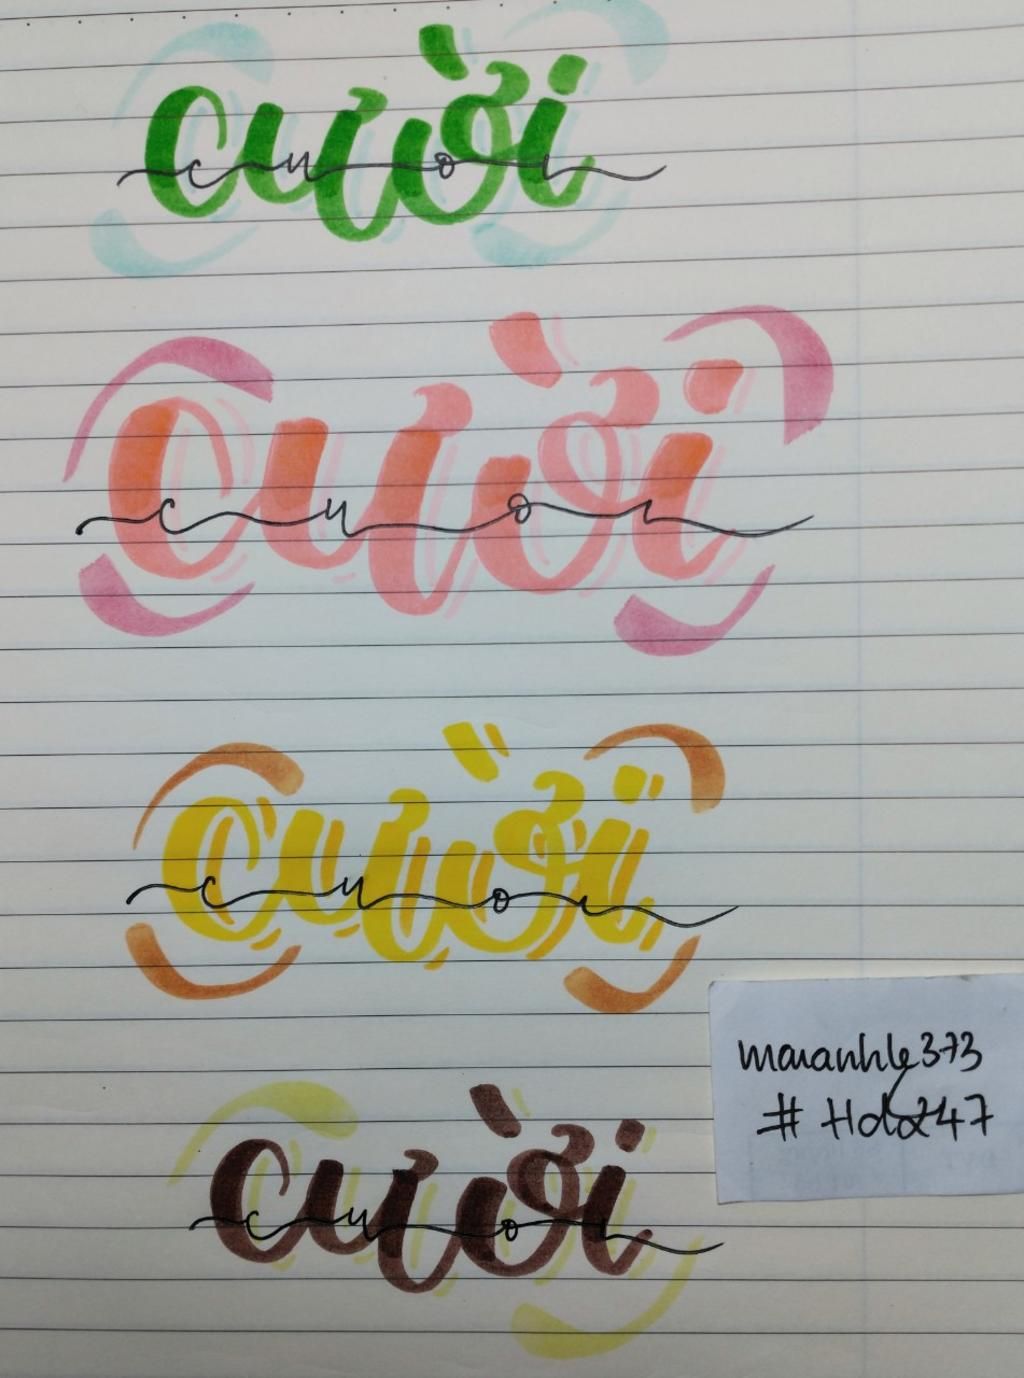 cười
cuoi
cười
cuoi
cười
cuoi
cười
cuoi
maianhle373
# Hda247